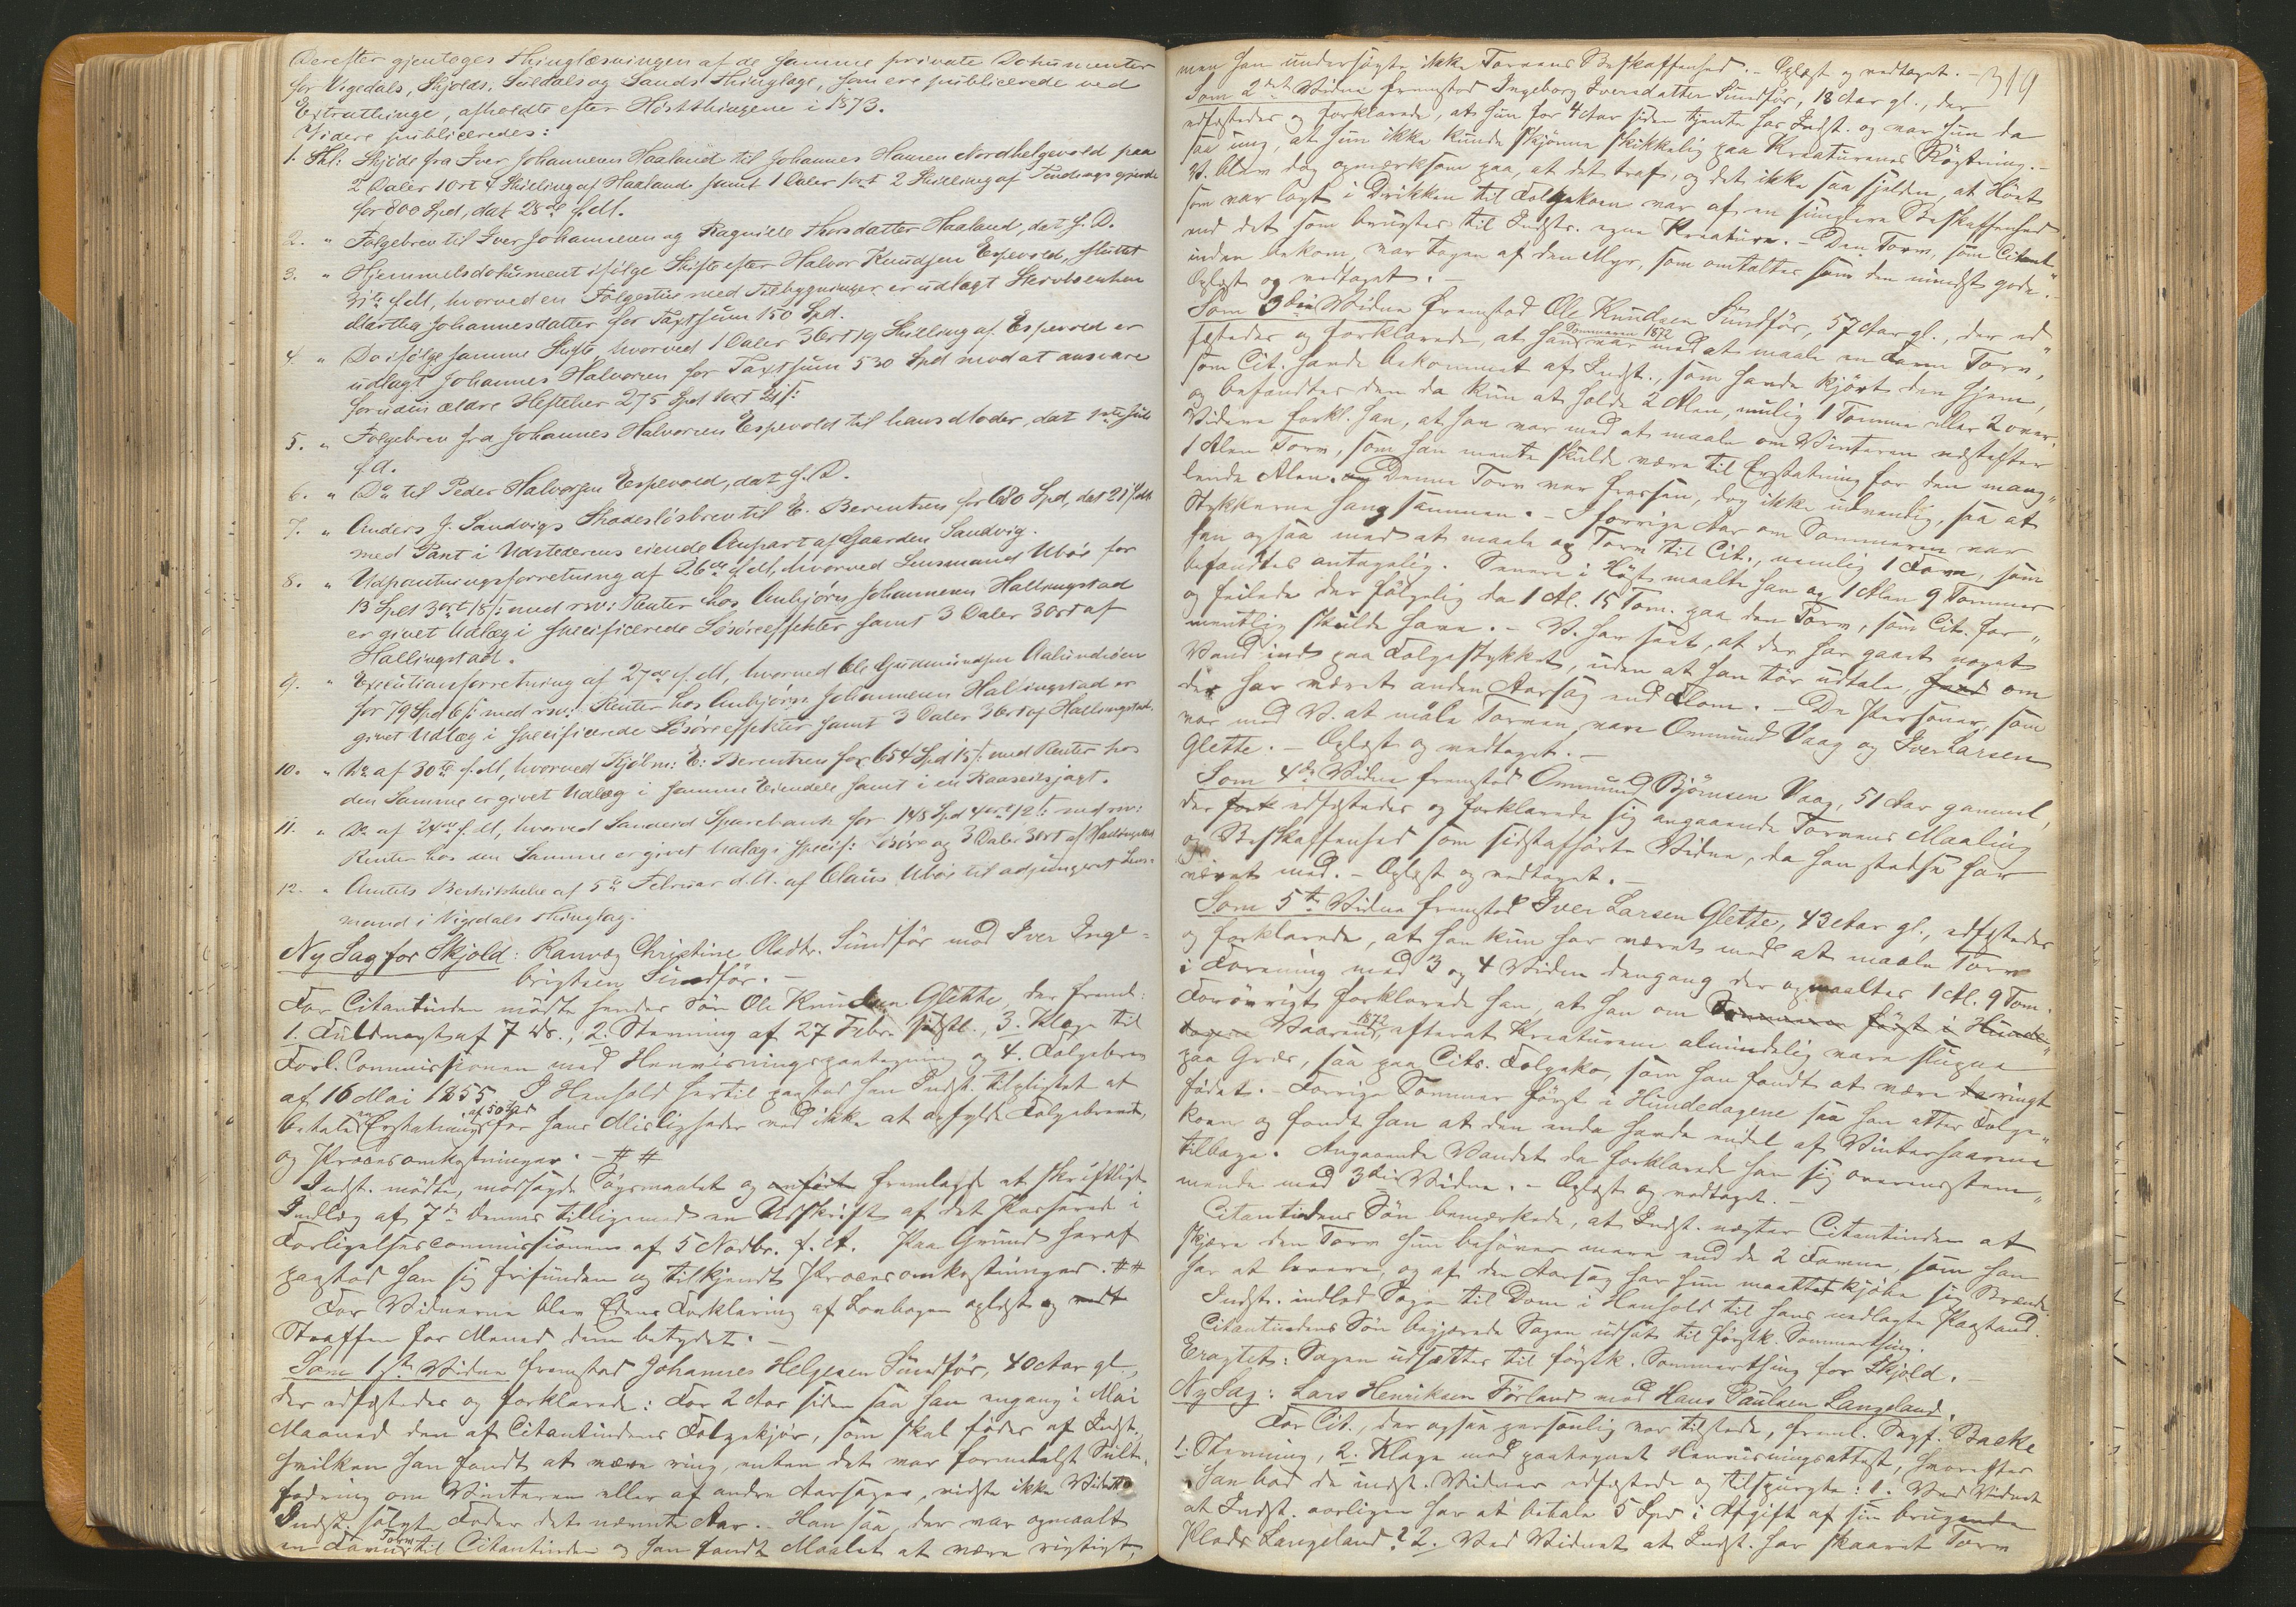 Derefter gjentoges Thinglæsningen af de samme private Dokumenter
for Vigedals, Skjolds, Suldals og Sands Thinglage, som ere publicerede ved
Extrathinge, afholdte efter Høstthingene i 1873.
Videre publiceredes:
1. Skl: Skjöde fra Iver Johannesen Haaland til Johannes Hansen Nordhelgevold paa
2 Daler 1 Ort 4 Skilling af Haaland samt 1 Daler 1 Ort 2 Skilling af
for 800 Spd, dat 28de f. M.
2. " Følgebrev til Iver Johannesen og Ragnilde Thorsdatter Haaland, dat f. D.
3. " Hjemmelsdokument ifølge Skifte efter Halvor Knudsen Espevold, sluttet
31te f. M, hvorved en Følgestue med Tilbygninger er udlagt Stervboenken
Martha Johannesdatter for Taxtsum 150 Spd.
4. " Do ifølge samme Skifte, hvorved 1 Daler 3 Ort 19 Skilling af Espevold er
udlagt Johannes Halvorsen for Taxtsum 530 Spd mod at ansvare
foruden ældre Heftelser 275 Spd 1 Ort 21 s:
5. " Følgebrev fra Johannes Halvorsen Espevold til hans Moder, dat 1ste Juli
f. A.
6. " Do til Peder Halvorsen Espevold, dat f. D.
7. " Anders J. Sandvigs Skadesløsbrev til E. Berentsen for 680 Spd, dat 21
med Pant i Udstederens eiende Anpart af Gaarden Sandvig.
8. " Udpantningsforretning af 26de f. M, hvorved Lensmand Ubøe for
13 Spd 3 ort 18 s: med rsv: Renter hos Anbjørn Johannesen Hallingstad
er givet Udlæg i specificerede Løsøreeffekter samt 3 Daler 3 Ort af
Hallingstad.
9. " Executionsforretning af 27de f. M, hvorved Ole Gudmundsen
for 79 Spd 6 s: med rsv: Renter hos Anbjørn Johannesen Hallingstad er
givet Udlæg i specificerede Løsøreeffekter samt 3 Daler 3 Ort af Hallingstad.
10. " Do af 30te f. M, hvorved Kjøbm: E: Berentsen for 654 Spd 15 s: med Renter hos
den Samme er givet Udlæg i samme Eiendele samt i en Kaaseseiljagt.
11. " Do af 24de f. M, hvorved Sandeid Sparebank for 148 Spd 4 ort 12 s: med rsv:
Renter hos den Samme er givet Udlæg i specif: Løsøre og 3 Daler 3 Ort af Hallingstad
12. " Amtets Beskikkelse af 5te Februar d. A. af Claus Ubøe til adjungeret Lens-
mand i Vigedals Thinglag.
Ny Sag for Skjold: Ranvæg Christine Olsdtr. Sundför mod Iver Inge-
brigtsen Sundför.
For Citantinden mødte hendes Søn Ole Knudsen Glette, der freml:
1. Fuldmagt af 7 ds., 2. Stevning af 27 Febr. sidstl., 3. Klage til
Forl. Commissionen med Henvisningspaategning og 4. Følgebrev
af 16 Mai 1855. I Henhold hertil paastod han Indst. tilpligtet at
betale en Erstatning af 50 Spd for hans Misligheder ved ikke at opfylde Følgebrevet,
og Procesomkostninger. – ##
Indst. mødte, modsagde Søgsmaalet og fremlagde et skriftligt
Indlæg af 7de dennes tilligemed en Udskrift af det Passerede i
Forligelsescommissionen af 5 Novbr. f. A. Paa Grund heraf
paastod han sig frifunden og tilkjendt Procesomkostninger. ##
For Vidnerne blev Edens Forklaring af Lovbogen oplæst og
Straffen for Mened dem betydet. –
Som 1ste Vidne fremstod Johannes Helgesen Sundför, 40 Aar gl.,
der edfæstedes og forklarede: For 2 Aar siden saa han engang i Mai
Maaned den af Citantindens Følgekjör, som skal födes af Indst.,
hvilken han fandt at være ring, enten det var formedelst Sult-
fodring om Vinteren eller af andre Aarsager, vidste ikke Vidnet.
Indst. solgte Foder det nævnte Aar. – Han saa, der var opmaalt
en Favn Torv til Citantinden og han fandt Maalet at være rigtigt,
314
men han undersøgte ikke Torvens Beskaffenhed. – Oplæst og vedtaget. –
Som 2det Vidne fremstod Ingeborg Iversdatter Sundför, 18 Aar gl., der
edfæstedes og forklarede, at hun for 4 Aar siden tjente hos Indst. og var hun da
saa ung, at hun ikke kunde skjönne skikkelig paa Kreaturenes Røgtning. –
V. blev dog opmærksom paa, at det traf, og det ikke saa sjelden, at Höet
som var lagt i Drikken til Følgekoen var af en simplere Beskaffenhed
end det som brugtes til Indsts. egne Kreature. – Den Torv, som Citant-
inden bekom, var tagen af den Myr, som omtaltes som den mindst gode. –
Oplæst og vedtaget.
Som 3die Vidne fremstod Ole Knudsen Sundför, 57 Aar gl., der ed-
fæstedes og forklarede, at han Sommeren 1872 var med at maale en Favn Torv,
som Cit. havde bekommet af Indst., som havde kjört den hjem,
og befandtes den da kun at holde 2 Alen, mulig 1 Tomme eller 2 over.
Videre forkl. han, at han var med at maale om Vinteren næstefter
1 Alen Torv, som han mente skulde være til Erstatning for den mang-
lende Alen. Denne Torv var frossen, dog ikke udvendig, saa at
Stykkerne hang sammen. – I forrige Aar om Sommeren var
han ogsaa med at maale op Torv til Cit., nemlig 1 Favn, som
befandtes antagelig. Senere i Høst maalte han op 1 Alen 9 Tommer
og feilede der følgelig da 1 Al. 15 Tom. paa den Torv, som Cit. for-
mentlig skulde have. – V. har seet, at der har gaaet noget
Vand ind paa Følgestykket, uden at han tör udtale om
der har været anden Aarsag end Flom. – De Personer, som
var med V. at måle Torven, vare Ommund Vaag og Iver Larsen
Glette. – Oplæst og vedtaget. –
Som 4de Vidne fremstod Ommund Bjørnsen Vaag, 51 Aar gammel,
der edfæstedes og forklarede sig angaaende Torvens Maaling
og Beskaffenhed som sidstafhørte Vidne, da han stedse har
været med. – Oplæst og vedtaget. –
Som 5te Vidne fremstod Iver Larsen Glette, 43 Aar gl., edfæstedes
og forklarede, at han kun har været med at maale Torv
i Forening med 3 og 4 Vidne dengang der opmaaltes 1 Al. 9 Tom.
Forøvrigt forklarede han, at han om Sommeren først i Hunde-
dagene Vaaren 1872, efterat Kreaturene almindelig vare slupne
paa Græs, saa paa Cits. Følgeko, som han fandt at være ringt
födet. – Forrige Sommer først i Hundedagene saa han atter Følge-
koen og fandt han at den enda havde endel af Vinterhaarene
tilbage. Angaaende Vandet da forklarede han sig overensstem-
mende med 3die Vidne. – Oplæst og vedtaget. –
Citantindens Søn bemærkede, at Indst. nægter Citantinden at
skjære den Torv hun behøver mere end de 2 Favne, som han
har at levere, og af den Aarsag har hun maattet kjøbe sig Brænde.
Indst. indlod Sagen til Dom i Henhold til hans nedlagte Paastand.
Citantindens Søn begjærede Sagen udsat til førstk. Sommerthing.
Eragtet: Sagen udsættes til førstk. Sommerthing for Skjold. –
Ny Sag: Lars Henriksen Förland mod Hans Paulsen Langeland.
For Cit., der ogsaa personlig var tilstede, freml. Sagf. Backe
1. Stevning, 2. Klage med paategnet Henvisningsattest, hvorefter
han bad de indst. Vidner edfæstede og tilspurgte: 1. Ved Vidnet
at Indst. aarligen har at betale 5 Spd i Afgift af sin brugende
Plads Langeland? 2. Ved Vidnet at Indst. har skaaret Torv